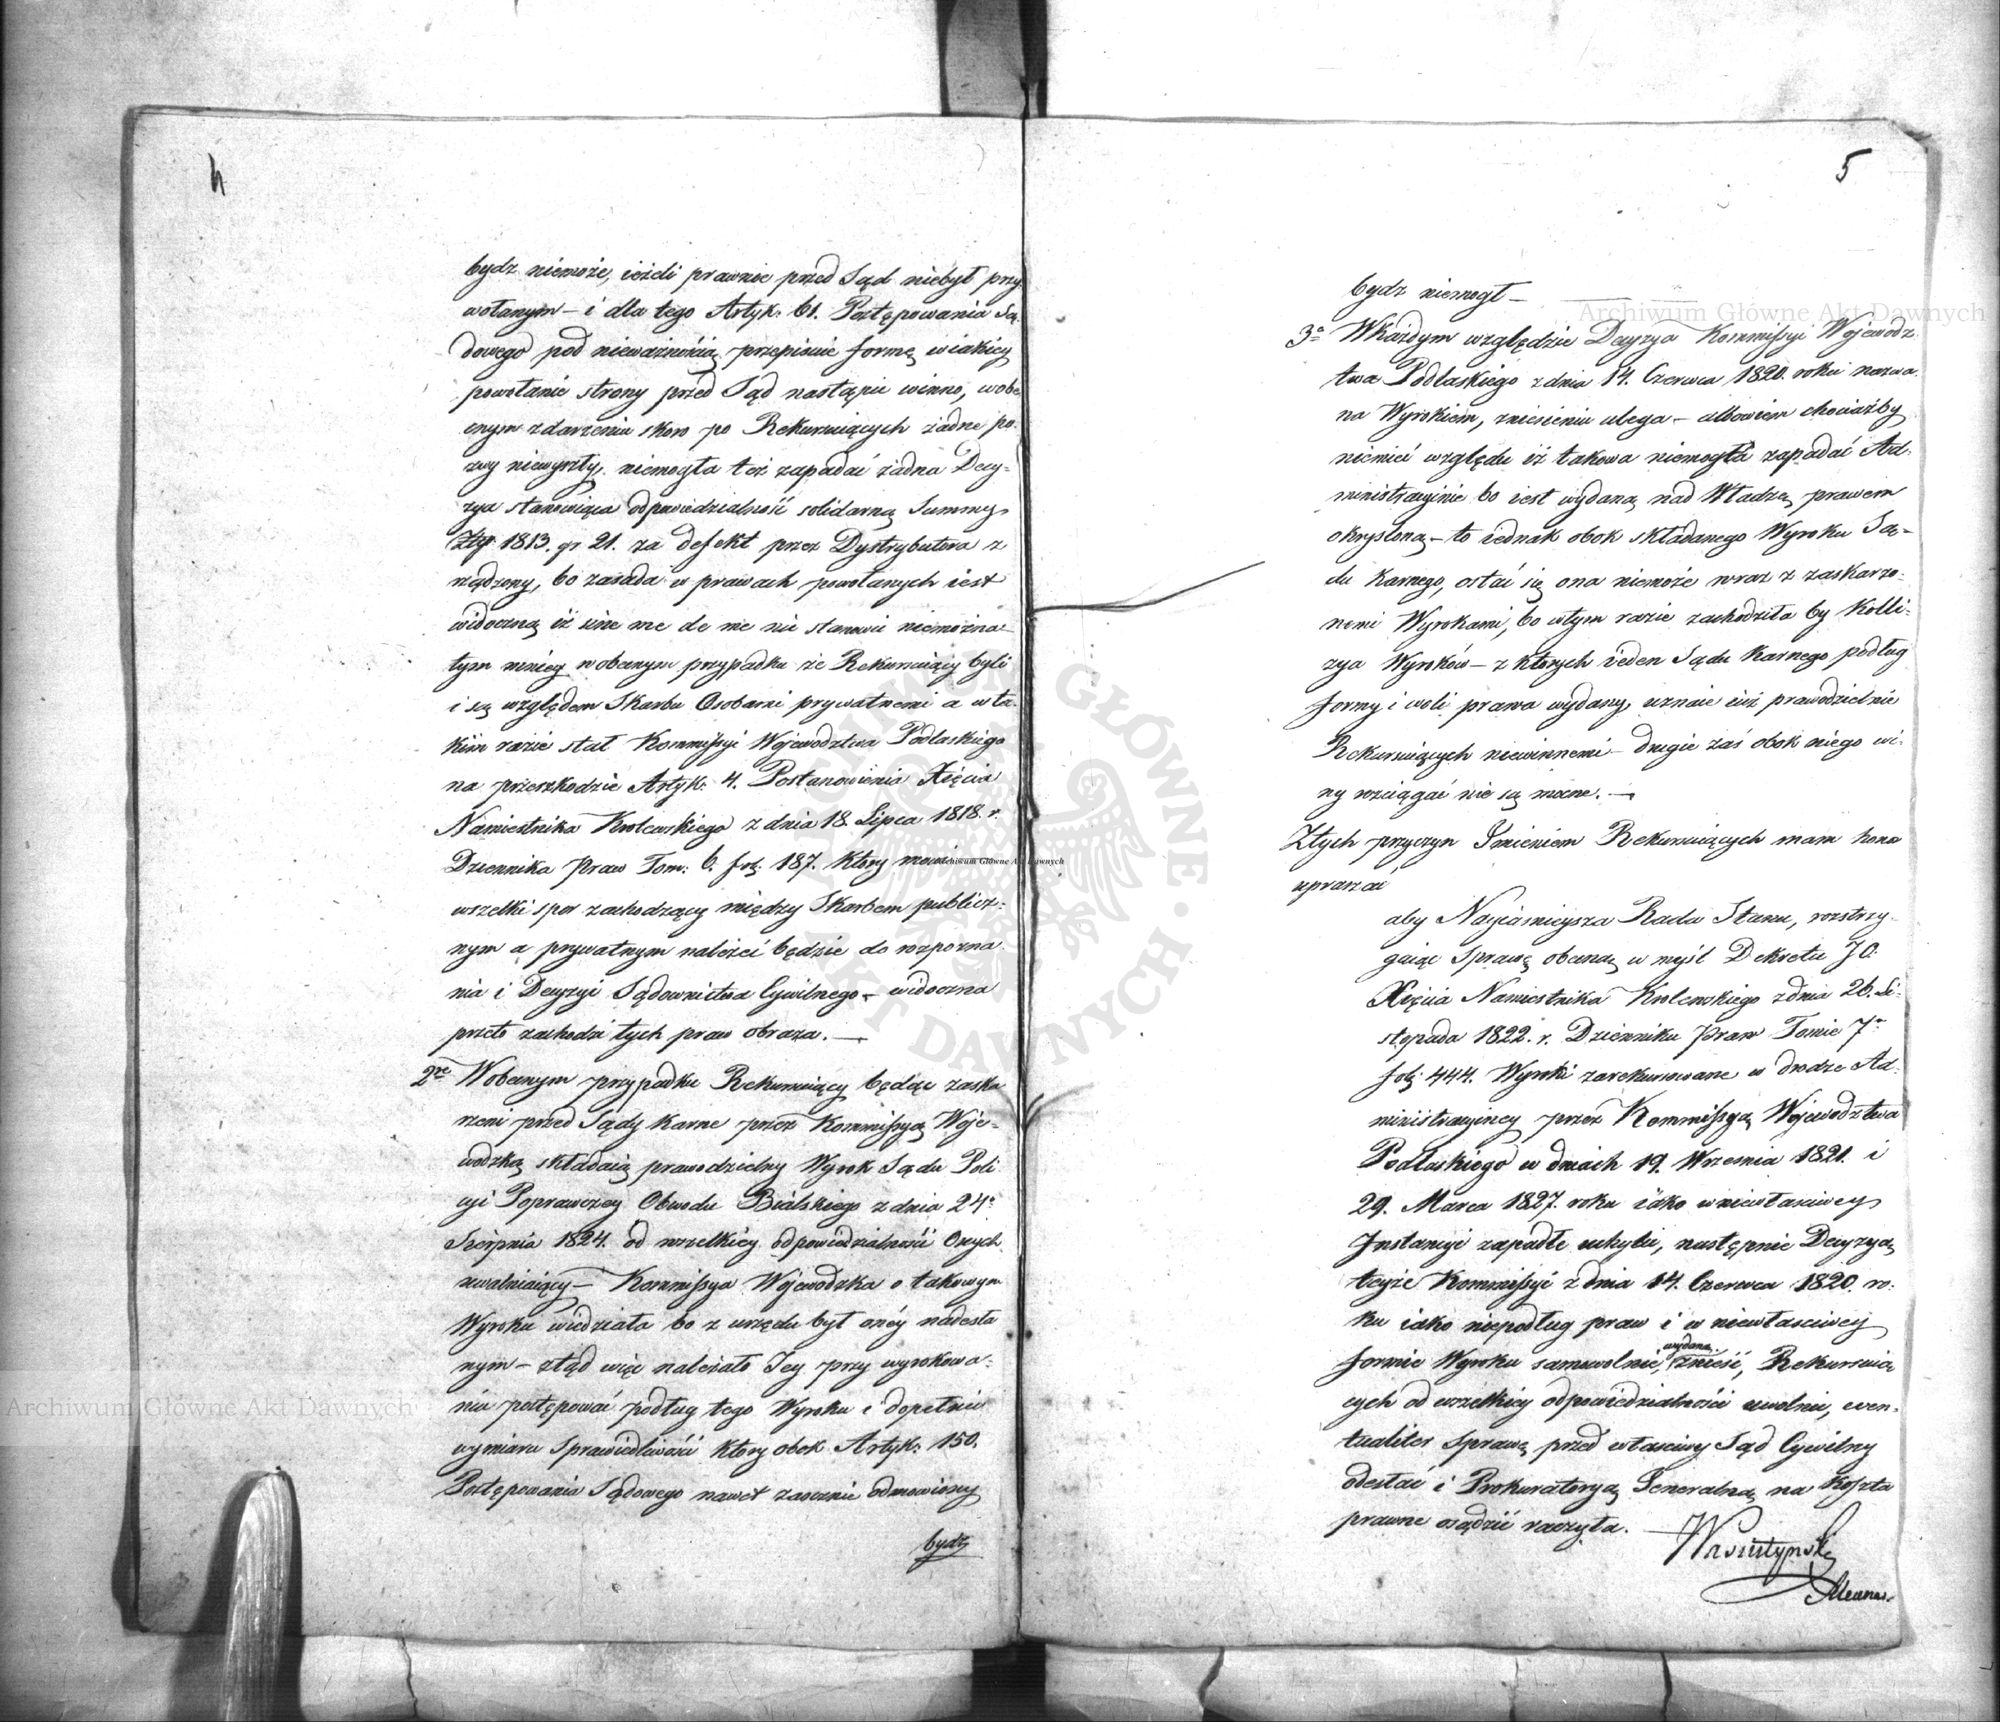 4
bydź niemoże, ieżeli prawnie przed Sąd niebył przy
wołanym – i dla tego Artyk: 61. Postępowania Są-
dowego pod nieważnością przepisuie formę wiakiey
powołanie strony przed Sąd nastąpić winno, wobe-
cnym zdarzeniu skoro po Rekurruiących żadne po-
zwy niewyszły, niemogła też zapadać żadna Decy-
zya stanowiąca odpowiedzialność solidarną Summy
Złtp: 1813. gr 21. za defekt przez Dystrybutora z
rządzony, bo zasada w prawach powołanych iest
widoczną iż sine me de me nic stanowić niemożna –
tym mniey w obecnym przypadku że Rekurruiący byli
i są względem Skarbu Osobami prywatnemi a w ta-
kim razie stał Kommissyi Woiewodztwa Podlaskiego
na przeszkodzie Artyk: 4. Postanowienia Xięcia
Namiestnika Krolewskiego z dnia 18. Lipca 1818. r.
Dziennika Praw Tom: 6. fol: 187. który mówi
wszelki spor zachodzący między Skarbem publicz-
nym a prywatnym należeć będzie do rozpozna
nia i Decyzyi Sądownictwa Cywilnego – widoczna
przeto zachodzi tych praw obraza. —
2re Wobecnym przypadku Rekurruiący będąc zaska
rzeni przed Sądy Karne przez Kommissyą Woie-
wodzką składaią prawodzielny Wyrok Sądu Poli
cyi Poprawczey Obwodu Bialskiego z dnia 24o
Sierpnia 1824. od wszelkiey odpowiedzialności Onych
uwalniaiący – Kommissya Woiewodzka o takowym
Wyroku wiedziała bo z urzędu był oney nadesła
nym – ztąd więc należało Jey przy wyrokowa-
niu postępować podług tego Wyroku i dopełnić
wymiaru Sprawiedliwości który obok Artyk: 150.
Postępowania Sądowego nawet zaocznie odmowiony
bydź
5
bydz niemogł —
3o Wkażdym względzie Decyzya Kommissyi Woiewodz
twa Podlaskiego z dnia 14. Czerwca 1820. roku nazwa
na Wyrokiem, zniesieniu ulega – albowiem chociażby
niemieć względu iż takowa niemogła zapadać Ad-
ministracyinie bo iest wydaną nad Władzę prawem
okrysloną – to iednak obok składanego Wyroku Są-
du Karnego, ostać się ona niemoże wraz z zaskarżo-
nemi Wyrokami, bo wtym razie zachodziła by Kolli-
zya Wyroków – z których ieden Sądu Karnego podług
formy i woli prawa wydany uznaie iuż prawodzielnie
Rekurruiących niewinnemi – drugie zaś obok niego wi-
ny rozciągać nie są mocne. —
Ztych przyczyn Imieniem Rekurruiących mam hono
upraszać
aby Nayiaśnieysza Rada Stanu, rozstrzy-
gaiąc Sprawę obecną w myśl Dekretu JO.
Xięcia Namiestnika Krolewskiego z dnia 26. Li-
stopada 1822. r. Dzienniku Praw Tomie 7m
fol: 444. Wyroki zarekursowane w drodze Ad-
ministracyiney przez Kommissyą Woiewodztwa
Podlaskiego w dniach 19. Września 1821. i
29. Marca 1827. roku iako wniewłaściwey
Instancyi zapadłe uchylić, następnie Decyzyą
teyże Kommissyi z dnia 14. Czerwca 1820. ro-
ku iako niepodług praw i w niewłaściwey
wydaną
formie Wyroku samowolnie, znieść, Rekurruią
cych od wszelkiey odpowiedzialności uwolnić, even-
tualiter Sprawę przed właściwy Sąd Cywilny
odesłać i Prokuratoryą Generalną na Koszta
prawne osądzić raczyła. —
Archiwum Główne Akt Dawnych
Archiwum Główne Akt Dawnych
Archiwum Główne Akt Dawnych
ARCHIWUM GŁÓWNE AKT DAWNYCH